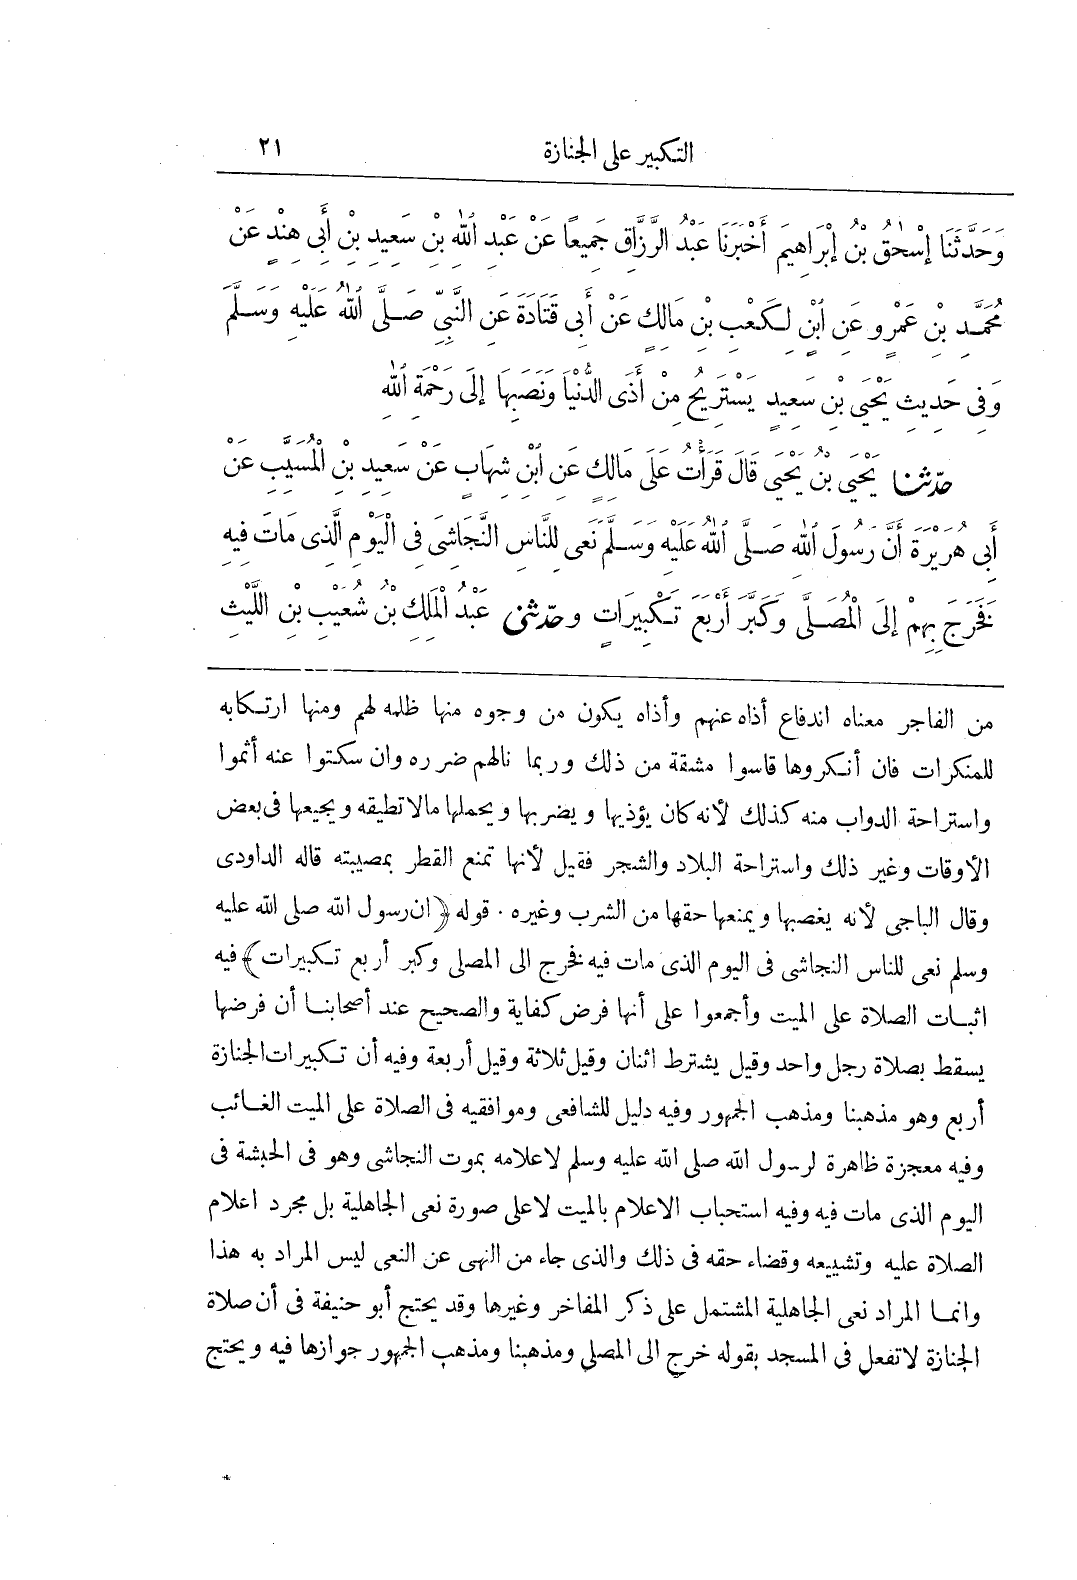 التكبير على الجنازة ٢١
وَحَدَّثَنَا إِسْحٰقُ بْنُ إِبْرَاهِيمَ أَخْبَرَنَا عَبْدُ الرَّزَّاقِ جَمِيعًا عَنْ عَبْدِ اللهِ بْنِ سَعِيدِ بْنِ أَبِى هِنْدٍ عَنْ
مُحَمَّدِ بْنِ عَمْرٍو عَنِ ابْنٍ لِكَعْبِ بْنِ مَالِكٍ عَنْ أَبِى قَتَادَةَ عَنِ النَّبِىِّ صَلَّى اللهُ عَلَيْهِ وَسَلَّمَ
وَفِى حَدِيثِ يَحْيَى بْنِ سَعِيدٍ يَسْتَرِيحُ مِنْ أَذَى الدُّنْيَا وَنَصَبِهَا إِلَى رَحْمَةِ اللهِ
حدّثنا يَحْيَى بْنُ يَحْيَى قَالَ قَرَأْتُ عَلَى مَالِكٍ عَنِ ابْنِ شِهَابٍ عَنْ سَعِيدِ بْنِ الْمُسَيَّبِ عَنْ
أَبِى هُرَيْرَةَ أَنَّ رَسُولَ اللهِ صَلَّى اللهُ عَلَيْهِ وَسَلَّمَ نَعَى لِلنَّاسِ النَّجَاشِىَ فِى الْيَوْمِ الَّذِى مَاتَ فِيهِ
فَخَرَجَ بِهِمْ إِلَى الْمُصَلَّى وَكَبَّرَ أَرْبَعَ تَكْبِيرَاتٍ وحدّثنى عَبْدُ الْمَلِكِ بْنُ شُعَيْبِ بْنِ اللَّيْثِ
من الفاجر معناه اندفاع أذاه عنهم وأذاه يكون من وجوه منها ظلمه لهم ومنها ارتكابه
للمنكرات فان أنكروها قاسوا مشقة من ذلك وربما نالهم ضرره وان سكتوا عنه أثموا
واستراحة الدواب منه كذلك لأنه كان يؤذيها ويضربها ويحملها مالاتطيقه ويجيعها فى بعض
الأوقات وغير ذلك واستراحة البلاد والشجر فقيل لأنها تمنع القطر بمصيبته قاله الداودى
وقال الباجى لأنه يغصبها ويمنعها حقها من الشرب وغيره . قوله ﴿ان رسول الله صلى الله عليه
وسلم نعى للناس النجاشى فى اليوم الذى مات فيه فخرج الى المصلى وكبر أربع تكبيرات﴾ فيه
اثبات الصلاة على الميت وأجمعوا على أنها فرض كفاية والصحيح عند أصحابنا أن فرضها
يسقط بصلاة رجل واحد وقيل يشترط اثنان وقيل ثلاثة وقيل أربعة وفيه أن تكبيرات الجنازة
أربع وهو مذهبنا ومذهب الجمهور وفيه دليل للشافعى وموافقيه فى الصلاة على الميت الغائب
وفيه معجزة ظاهرة لرسول الله صلى الله عليه وسلم لاعلامه بموت النجاشى وهو فى الحبشة فى
اليوم الذى مات فيه وفيه استحباب الاعلام بالميت لاعلى صورة نعى الجاهلية بل مجرد اعلام
الصلاة عليه وتشييعه وقضاء حقه فى ذلك والذى جاء من النهى عن النعى ليس المراد به هذا
وانما المراد نعى الجاهلية المشتمل على ذكر المفاخر وغيرها وقد يحتج أبو حنيفة فى أن صلاة
الجنازة لاتفعل فى المسجد بقوله خرج الى المصلى ومذهبنا ومذهب الجمهور جوازها فيه ويحتج